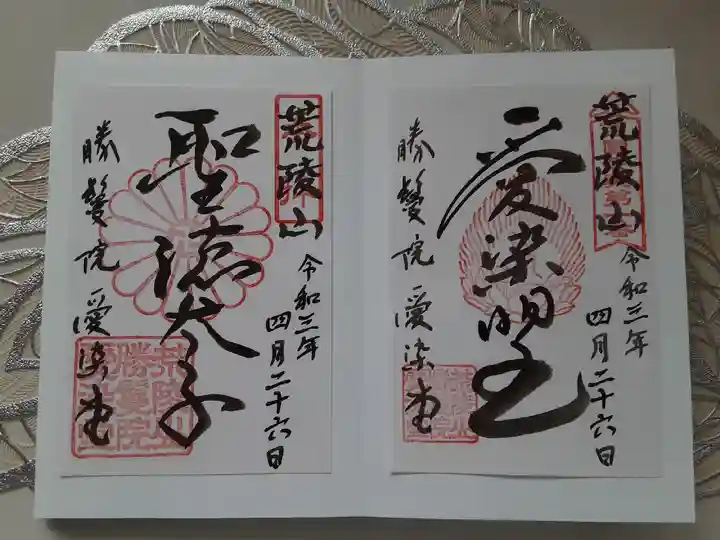 荒陵山
愛染明王
令和三年
四月二十六日
勝鬘院愛染堂
荒陵山
聖徳太子
令和三年
四月二十六日
勝鬘院愛染堂